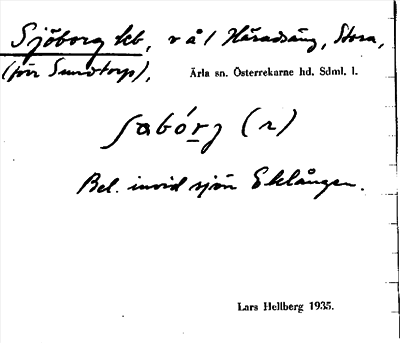 Sjöborg kb, v å l Häradsäng, Stora,
(förr Sundtorp), Ärla sn. Österrekarne hd. Sdml. l.
ʃabórg (r)
Bel. invid sjön Eklången.
Lars Hellberg 1935.